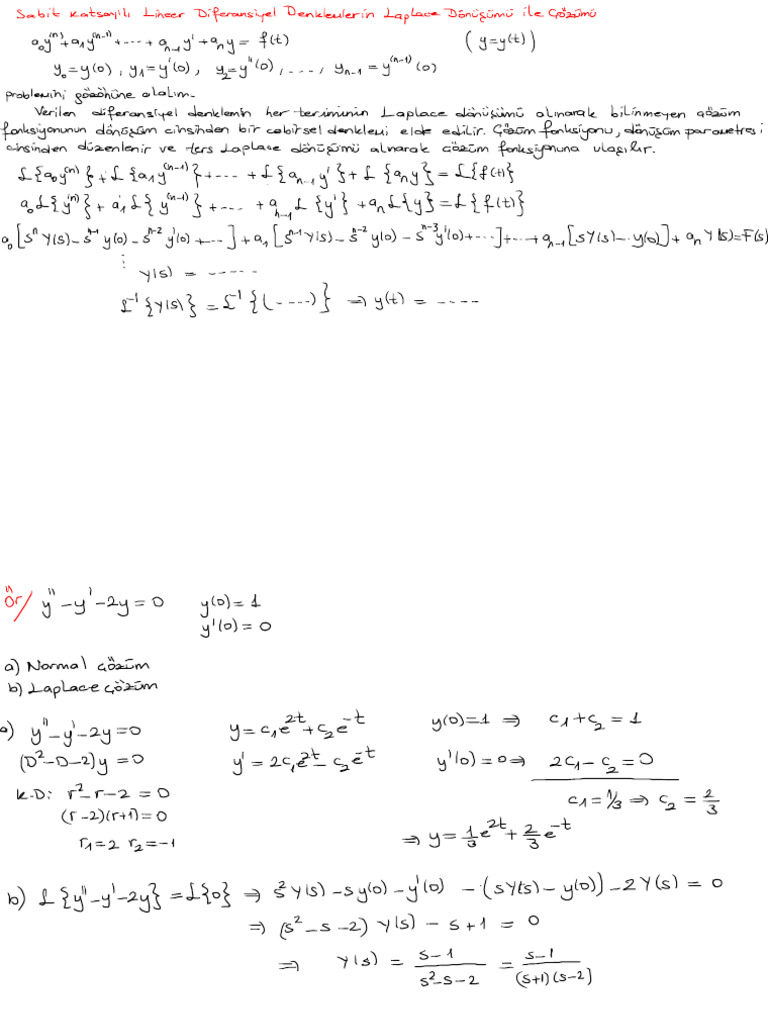 Sabit Katsayılı Lineer Diferansiyel Denklemlerin Laplace Dönüşümü ile Çözümü
a₀y⁽ⁿ⁾+a₁y⁽ⁿ⁻¹⁾+...+aₙ₋₁y'+aₙy = f(t) (y=y(t))
y₀=y(0), y₁=y'(0), y₂=y''(0), ..., yₙ₋₁=y⁽ⁿ⁻¹⁾(0)
problemini gözönüne alalım.
Verilen diferansiyel denklemin her teriminin Laplace dönüşümü alınarak bilinmeyen çözüm
fonksiyonunun dönüşüm cinsinden bir cebirsel denklemi elde edilir. Çözüm fonksiyonu, dönüşüm parametresi
cinsinden düzenlenir ve ters Laplace dönüşümü alınarak çözüm fonksiyonuna ulaşılır.
ℒ{a₀y⁽ⁿ⁾}+ℒ{a₁y⁽ⁿ⁻¹⁾}+...+ℒ{aₙ₋₁y'}+ℒ{aₙy}=ℒ{f(t)}
a₀ℒ{y⁽ⁿ⁾}+a₁ℒ{y⁽ⁿ⁻¹⁾}+...+aₙ₋₁ℒ{y'}+aₙℒ{y}=ℒ{f(t)}
a₀[sⁿY(s)-sⁿ⁻¹y(0)-sⁿ⁻²y'(0)+...]+a₁[sⁿ⁻¹Y(s)-sⁿ⁻²y(0)-sⁿ⁻³y'(0)+...]+...+aₙ₋₁[sY(s)-y(0)]+aₙY(s)=F(s)
⋮
Y(s) = .....
ℒ⁻¹{Y(s)} = ℒ⁻¹{(....)} ⇒ y(t) = ....
Ör/ y''-y'-2y=0 y(0)=1
y'(0)=0
a) Normal çözüm
b) Laplace çözüm
a) y''-y'-2y=0 y=c₁e²ᵗ+c₂e⁻ᵗ y(0)=1 ⇒ c₁+c₂=1
(D²-D-2)y=0 y'=2c₁e²ᵗ-c₂e⁻ᵗ y'(0)=0 ⇒ 2c₁-c₂=0
K.D: r²-r-2=0 c₁=1/3 ⇒ c₂=2/3
(r-2)(r+1)=0
r₁=2 r₂=-1 ⇒ y=1/3e²ᵗ+2/3e⁻ᵗ
b) ℒ{y''-y'-2y}=ℒ{0} ⇒ s²Y(s)-sy(0)-y'(0)-(sY(s)-y(0))-2Y(s)=0
⇒ (s²-s-2)Y(s)-s+1=0
⇒ Y(s) = s-1/s²-s-2 = s-1/(s+1)(s-2)